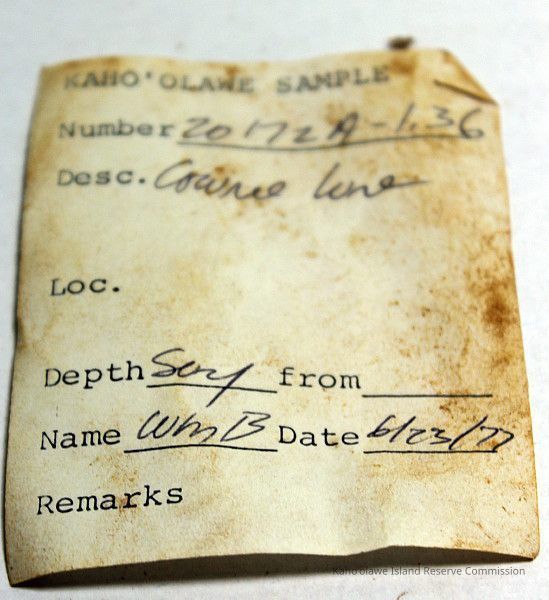 KAHO'OLAWE SAMPLE
Number 20172A-1.36
Desc. Cowrie lure
Loc.
Depth Surf from
Name WmB Date 6/23/77
Remarks
Kaho'olawe Island Reserve Commission